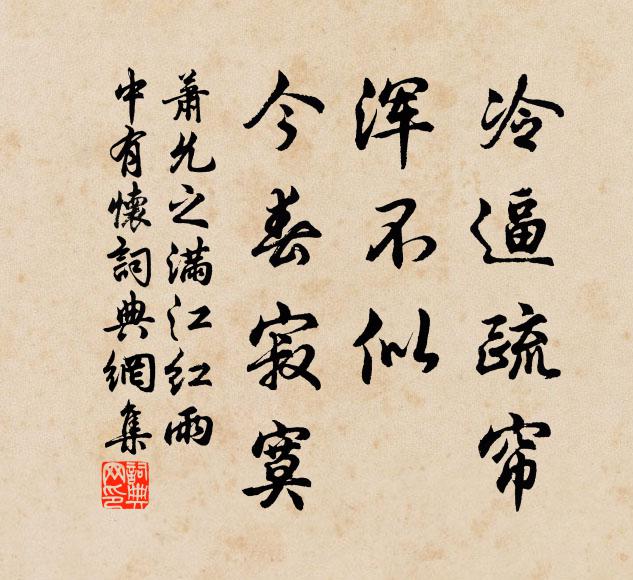 冷逼疏帘
浑不似
今春寂寞
萧允之满江红雨
中有懷詞典網集
詞典
网印